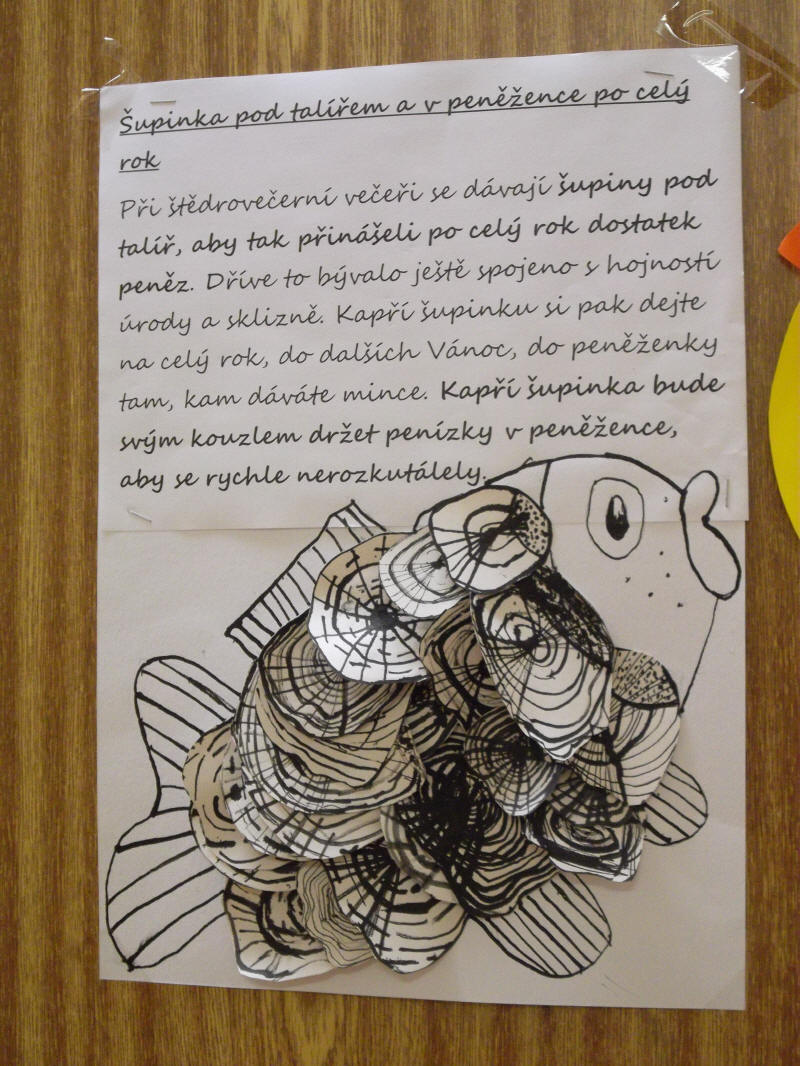 Šupinka pod talířem a v peněžence po celý
rok
Při štědrovečerní večeři se dávají šupiny pod
talíř, aby tak přinášeli po celý rok dostatek
peněz. Dříve to bývalo ještě spojeno s hojností
úrody a sklizně. Kapří šupinku si pak dejte
na celý rok, do dalších Vánoc, do peněženky
tam, kam dáváte mince. Kapří šupinka bude
svým kouzlem držet penízky v peněžence,
aby se rychle nerozkutálely.